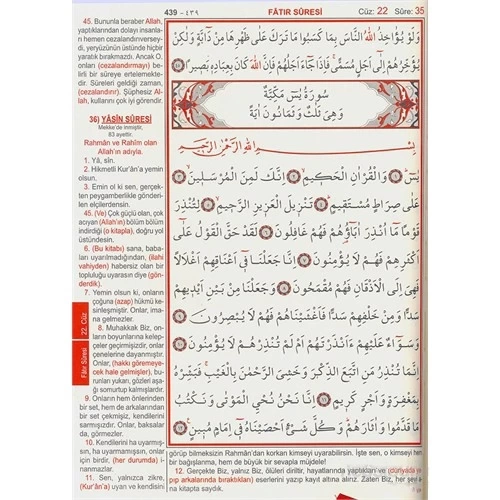 439 - ٤٣٩
FÂTIR SÛRESİ
Cüz: 22 Sûre: 35
45. Bununla beraber Allah,
yaptıklarından dolayı insanla-
rı hemen cezalandırıverseydi,
yeryüzünün üstünde hiçbir
yaratık bırakmazdı. Ancak O,
onları (cezalandırmayı) belir-
li bir süreye ertelemekte-
dir. Süreleri geldiği zaman,
(cezalandırır). Şüphesiz Al-
lah, kullarını çok iyi görendir.
36) YÂSÎN SÛRESİ
Mekke'de inmiştir,
83 ayettir.
Rahmân ve Rahîm olan
Allah'ın adıyla.
1. Yâ, sîn.
2. Hikmetli Kur'ân'a yemin
olsun.
3. Emin ol ki sen, gerçek-
ten peygamberlikle gönderi-
len elçilerdensin.
45. (Ve) Çok güçlü olan, çok
acıyan (Allah'ın) bölüm bölüm
indirdiği (o kitapla), doğru yol
üstündesin.
6. (Bu kitabı) sana, baba-
ları uyarılmadığından, (ilâhi
vahiyden) habersiz olan bir
topluluğu uyarasın diye (gön-
derdik).
7. Yemin olsun ki, onların
çoğuna (azap) hükmü ke-
sinleşmiştir. Onlar, ima-
na gelmezler.
8. Muhakkak Biz, on-
ların boyunlarına kelep-
çeler geçirmişizdir, onlar
çenelerine dayanmıştır.
Onlar, (hakkı göremeye-
cek hale gelmişler), bu-
runları yukarı, gözleri aşa-
ğı somurtup kalmışlardır.
9. Onların hem önlerinden
bir set, hem de arkalarından
bir set çekmişiz, kendilerini
sarmışızdır. Onlar, baksalar
da, görmezler.
10. Kendilerini ha uyarmış-
sın, ha uyarmamışsın, onlar
için birdir, (her durumda) i-
nanmazlar.
11. Sen, yalnızca zikre,
(Kur'ân'a) uyan ve kendisini
22. Cüz
Fâtır Sûresi
وَلَوْ يُؤَاخِذُ اللّٰهُ النَّاسَ بِمَا كَسَبُوا مَا تَرَكَ عَلٰى ظَهْرِهَا مِنْ دَٓابَّةٍ وَلٰكِنْ
يُؤَخِّرُهُمْ اِلٰٓى اَجَلٍ مُسَمًّى فَاِذَا جَٓاءَ اَجَلُهُمْ فَاِنَّ اللّٰهَ كَانَ بِعِبَادِهٖ بَصٖيرًا
سُورَةُ يٰسٓ مَكِّيَّةٌ
وَهِيَ ثَلٰثٌ وَثَمَانُونَ اٰيَةً
بِسْمِ اللّٰهِ الرَّحْمٰنِ الرَّحٖيمِ
يٰسٓ وَالْقُرْاٰنِ الْحَكٖيمِ اِنَّكَ لَمِنَ الْمُرْسَلٖينَ
عَلٰى صِرَاطٍ مُسْتَقٖيمٍ تَنْزٖيلَ الْعَزٖيزِ الرَّحٖيمِ لِتُنْذِرَ
قَوْمًا مَٓا اُنْذِرَ اٰبَٓاؤُهُمْ فَهُمْ غَافِلُونَ لَقَدْ حَقَّ الْقَوْلُ عَلٰٓى
اَكْثَرِهِمْ فَهُمْ لَا يُؤْمِنُونَ اِنَّا جَعَلْنَا فٖٓي اَعْنَاقِهِمْ اَغْلَالًا
فَهِيَ اِلَى الْاَذْقَانِ فَهُمْ مُقْمَحُونَ وَجَعَلْنَا مِنْ بَيْنِ اَيْدٖيهِمْ
سَدًّا وَمِنْ خَلْفِهِمْ سَدًّا فَاَغْشَيْنَاهُمْ فَهُمْ لَا يُبْصِرُونَ
وَسَوَٓاءٌ عَلَيْهِمْ ءَاَنْذَرْتَهُمْ اَمْ لَمْ تُنْذِرْهُمْ لَا يُؤْمِنُونَ
اِنَّمَا تُنْذِرُ مَنِ اتَّبَعَ الذِّكْرَ وَخَشِيَ الرَّحْمٰنَ بِالْغَيْبِ فَبَشِّرْهُ
بِمَغْفِرَةٍ وَاَجْرٍ كَرٖيمٍ اِنَّا نَحْنُ نُحْيِ الْمَوْتٰى وَنَكْتُبُ
مَا قَدَّمُوا وَاٰثَارَهُمْ وَكُلَّ شَيْءٍ اَحْصَيْنَاهُ فٖٓي اِمَامٍ مُبٖينٍ
görüp bilmeksizin Rahmân'dan korkan kimseyi uyarabilirsin. İşte sen, o kimseyi hem
bir bağışlanma, hem de büyük bir sevapla müjdele!
12. Gerçekten Biz, yalnız Biz, ölüleri diriltir, hayatlarında yaptıkları ve (dünyada
pıp arkalarında bıraktıkları) eserlerini yazıp kayıt altına alırız. Zaten Biz, her şeyi a-
na kitapta saydık.